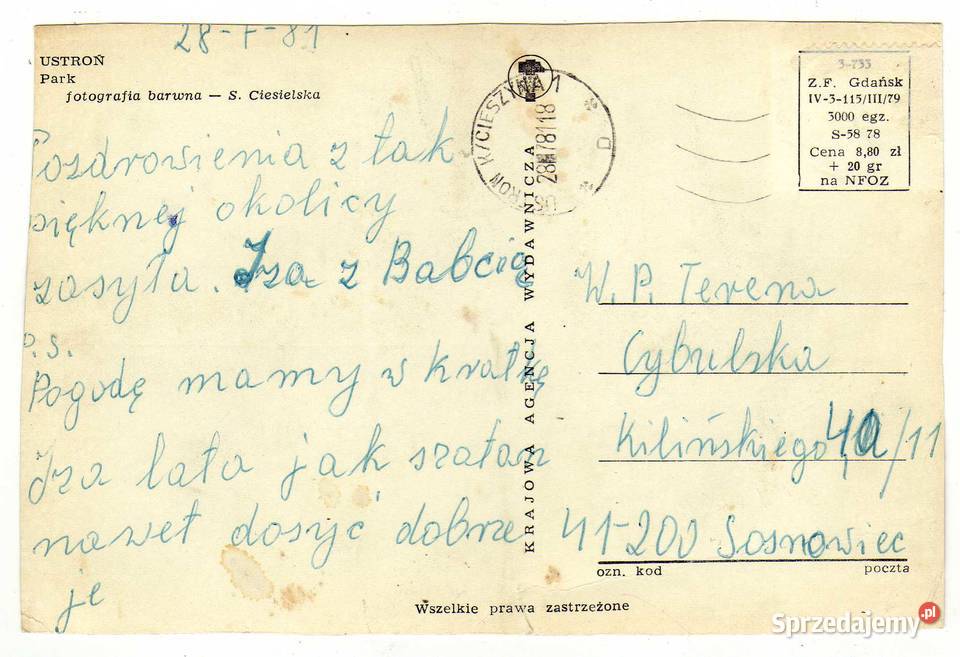 28-7-81
USTROŃ
Park
fotografia barwna — S. Ciesielska
Pozdrowienia z tak
pięknej okolicy
zasyła. Iza z Babcią
P.S.
Pogodę mamy w kratkę
Iza lata jak szatan
nawet dosyć dobrze
je
KRAJOWA AGENCJA WYDAWNICZA
USTROŃ K/CIESZYNA 1
D
3-733
Z.F. Gdańsk
IV-3-115/III/79
3000 egz.
S-58 78
Cena 8,80 zł
+ 20 gr
na NFOZ
W. P. Terena
Cybulska
Kilińskiego 40/11
41-200 Sosnowiec
ozn. kod poczta
Wszelkie prawa zastrzeżone
Sprzedajemy.pl